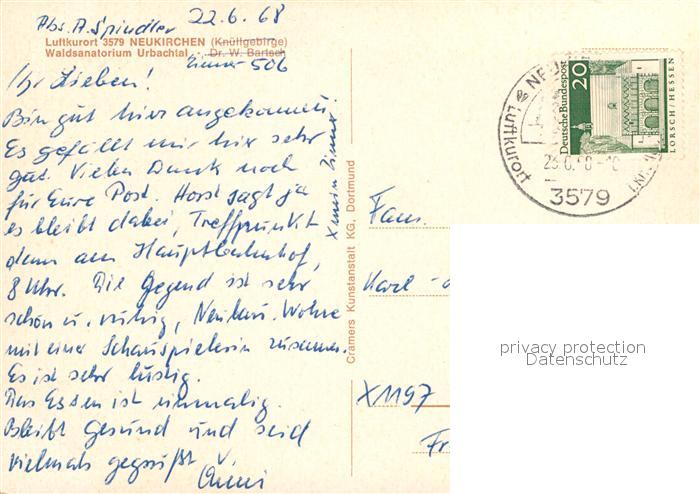 Abs. A. Spindler 22.6.68
Luftkurort 3579 NEUKIRCHEN (Knüllgebirge)
Waldsanatorium Urbachtal - Dr. W. Bartsch
Zimmer 506
Ihr Lieben!
Bin gut hier angekommen.
Es gefällt mir hier sehr
gut. Vielen Dank noch
für Eure Post. Horst sagt ja
es bleibt dabei, Treffpunkt
dann am Hauptbahnhof,
8 Uhr. Die Gegend ist sehr
schön u. ruhig, Wohne
mit einer Schauspielerin zusammen.
Es ist sehr lustig.
Das Essen ist einmalig.
Bleibt gesund und seid
vielmals gegrüßt v.
Anni
x mein Zimmer
Cramers Kunstanstalt KG, Dortmund
Fam.
Karl -
X 1197
Fr
Deutsche Bundespost
20
LORSCH/HESSEN
Luftkurort
3579
privacy protection
Datenschutz